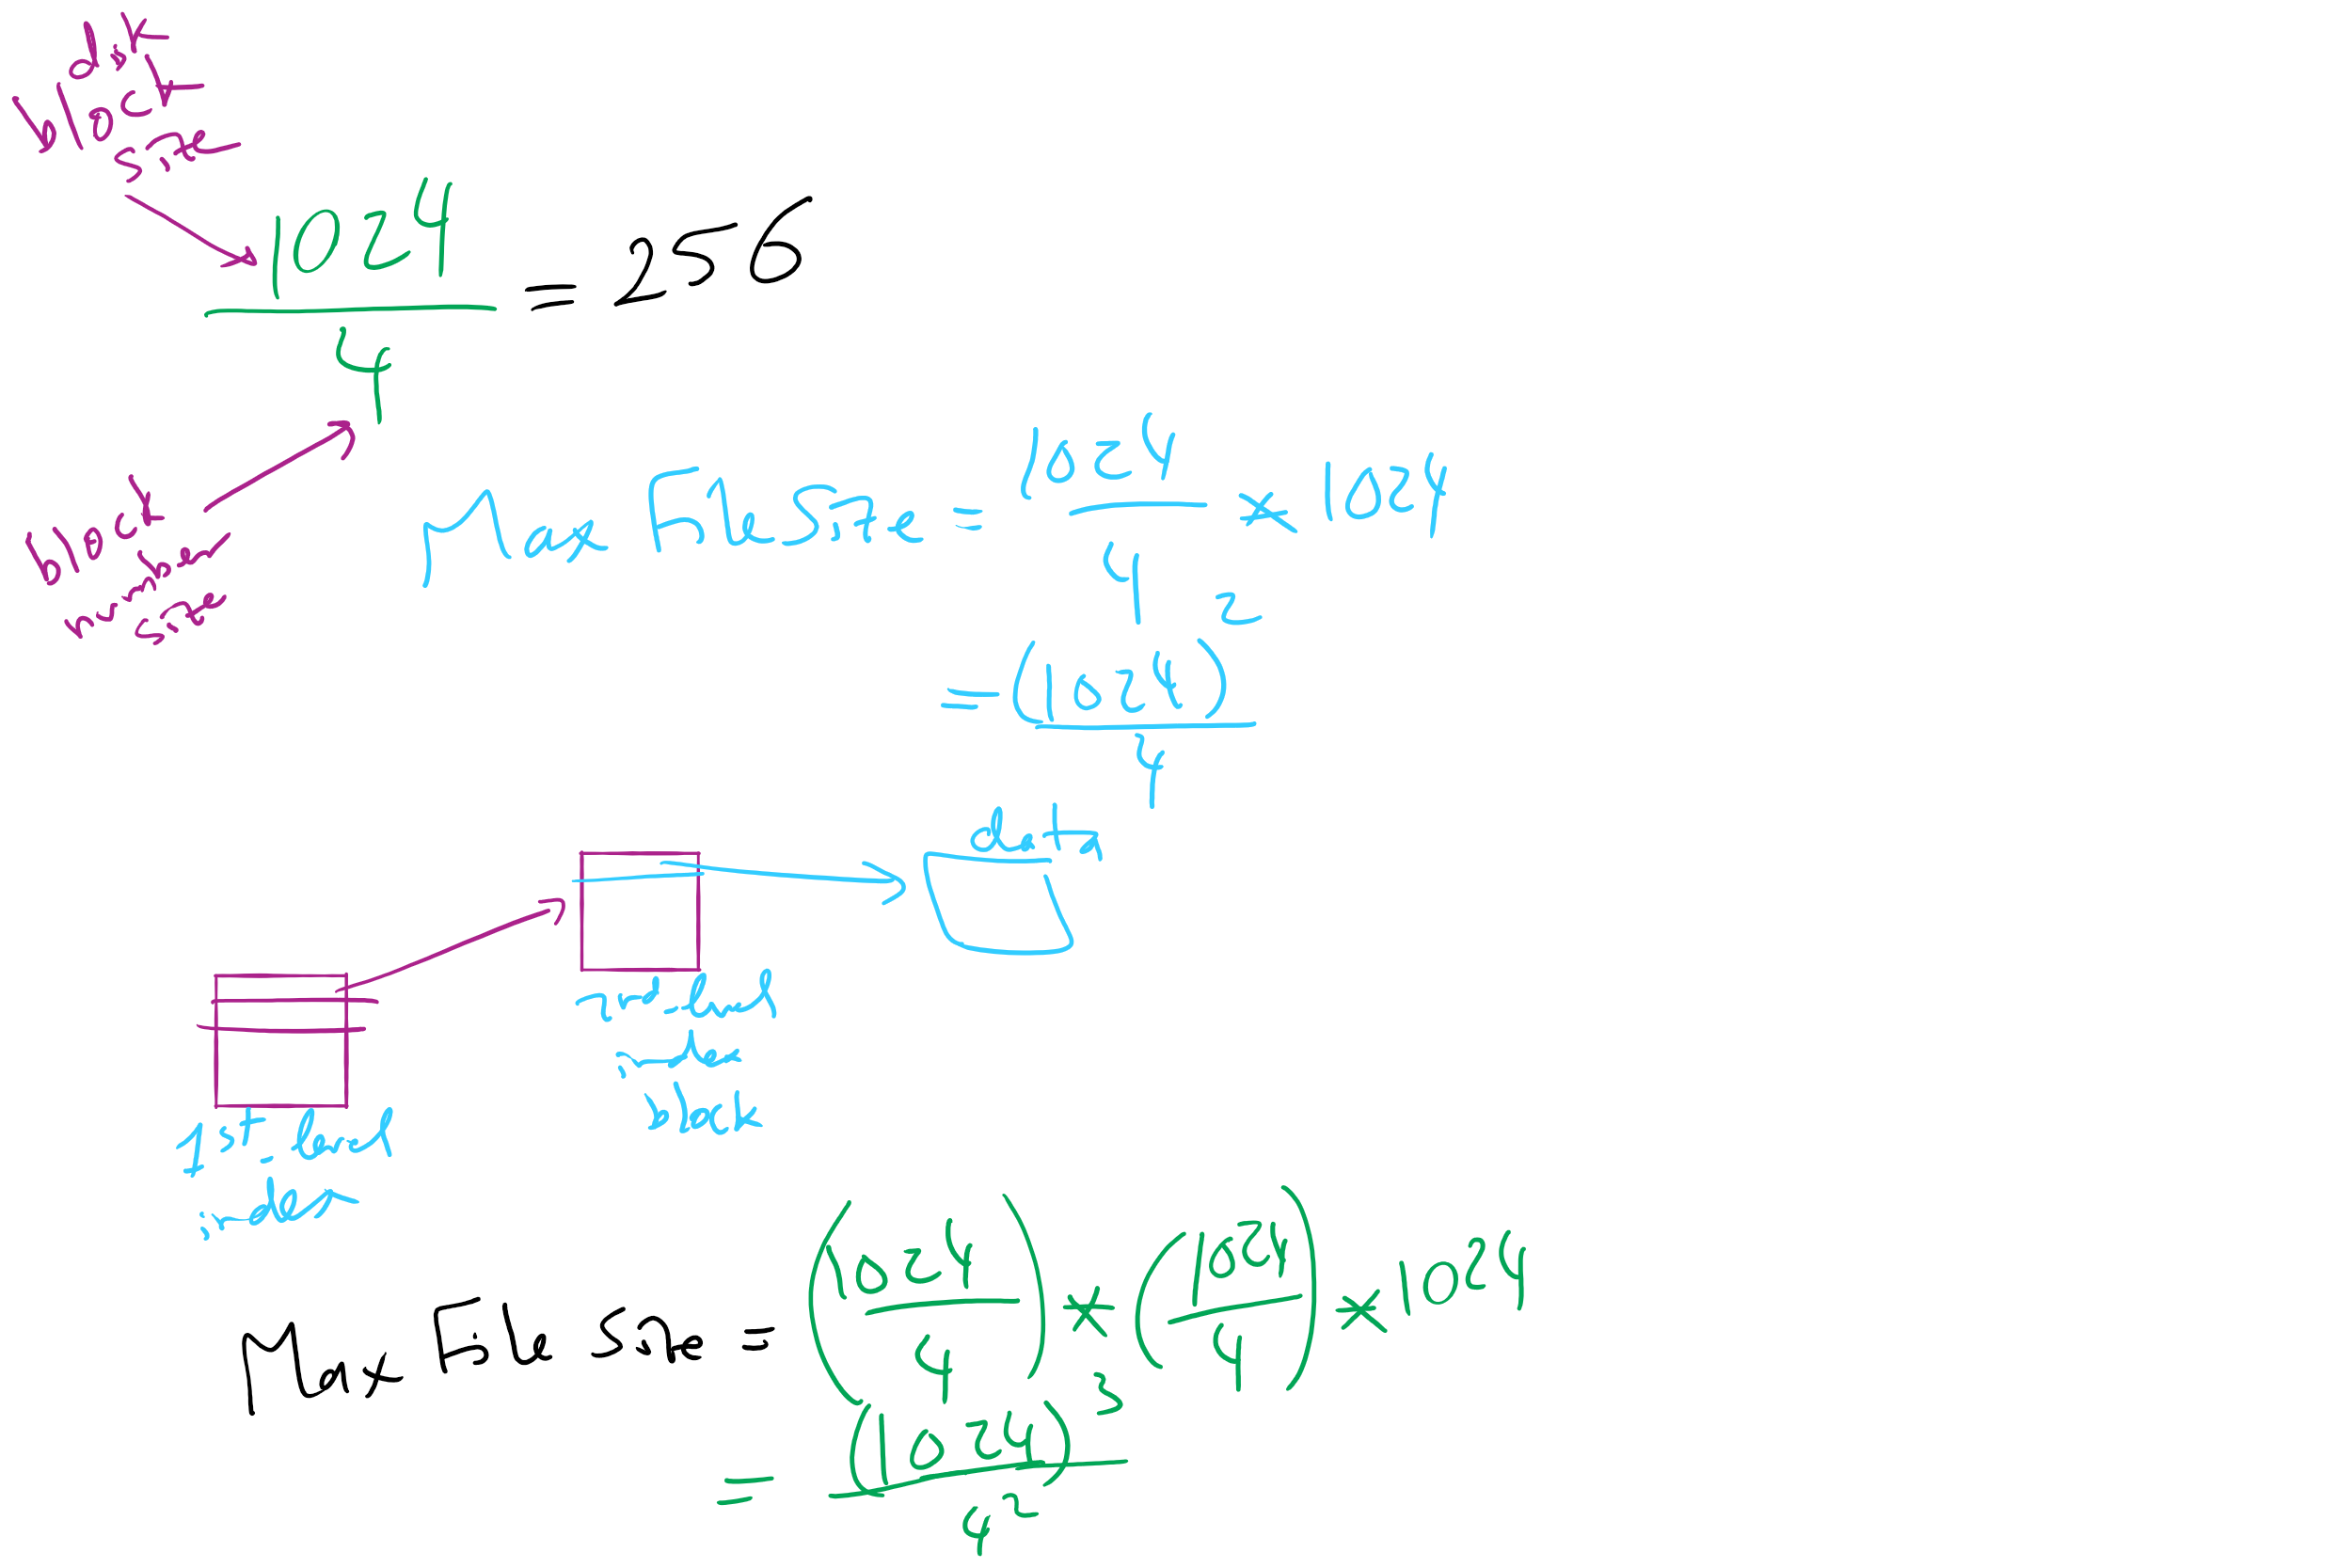 disk
block
size
1024 / 4 = 256
block
number
size
Max File Size = 1024 / 4 * 1024
= (1024)^2 / 4
data
2nd-level
index
block
1st-level
index
Max File Size = (1024 / 4) * (1024 / 4) * 1024
= (1024)^3 / 4^2